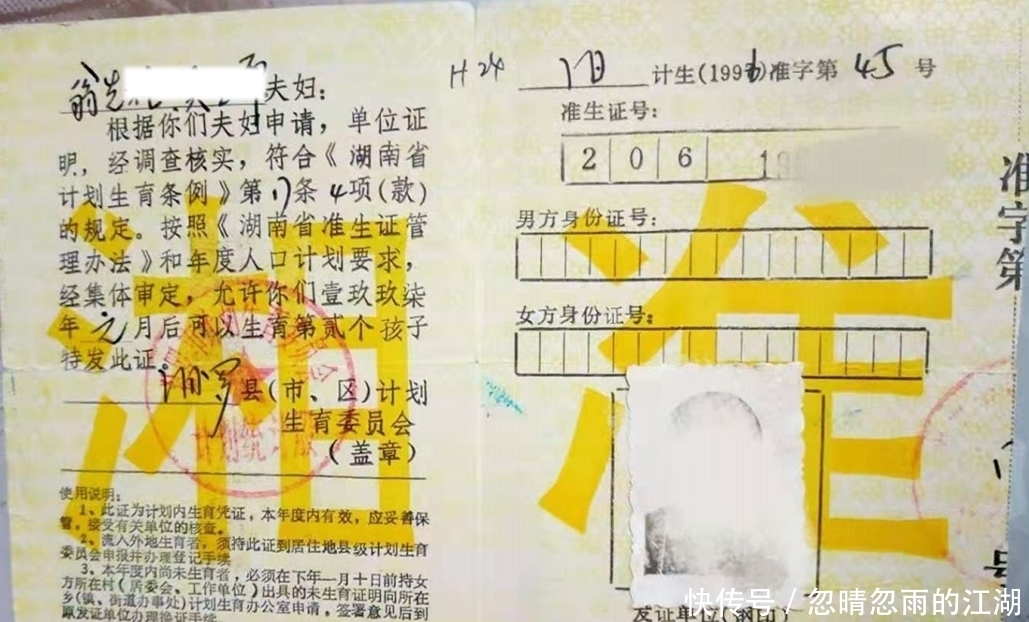 翁先 夫妇：
根据你们夫妇申请，单位证
明，经调查核实，符合《湖南省
计划生育条例》第17条4项(款)
的规定。按照《湖南省准生证管
理办法》和年度人口计划要求，
经集体审定，允许你们壹玖玖柒
年元月后可以生育第贰个孩子
特发此证。
汨罗县(市、区)计划
生育委员会
(盖章)
使用说明：
1、此证为计划内生育凭证，本年度内有效，应妥善保
管，接受有关单位的核查。
2、流入外地生育者，须持此证到居住地县级计划生育
委员会申报并办理登记手续
3、本年度内尚未生育者，必须在下年一月十日前持女
方所在村(居委会、工作单位)出具的未生育证明向所在
乡(镇、街道办事处)计划生育办公室申请，签署意见后到
原发证单位办理换证手续
H24
汨 计生(1996)准字第 45 号
准生证号：
2 0 6 19
男方身份证号：
女方身份证号：
发证单位(钢印)
湖
准
准字第
号
快传号 / 忽晴忽雨的江湖